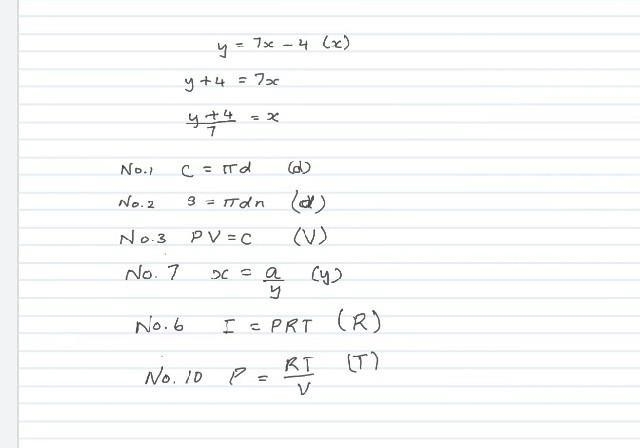 y = 7x - 4 (x)
y + 4 = 7x
y + 4 / 7 = x
No.1 C = πd (d)
No.2 3 = πdn (d)
No.3 PV = C (V)
No. 7 x = a / y (y)
No. 6 I = PRT (R)
No. 10 P = RT / V (T)